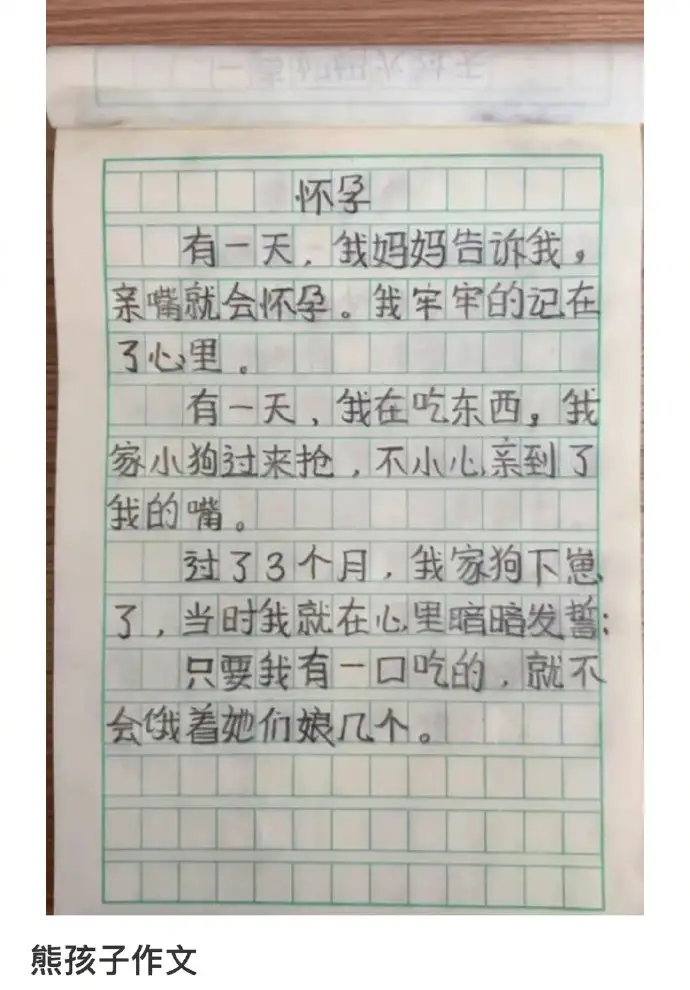 怀孕
有一天，我妈妈告诉我，
亲嘴就会怀孕。我牢牢的记在
了心里。
有一天，我在吃东西，我
家小狗过来抢，不小心亲到了
我的嘴。
过了3个月，我家狗下崽
了，当时我就在心里暗暗发誓：
只要我有一口吃的，就不
会饿着她们娘几个。
熊孩子作文